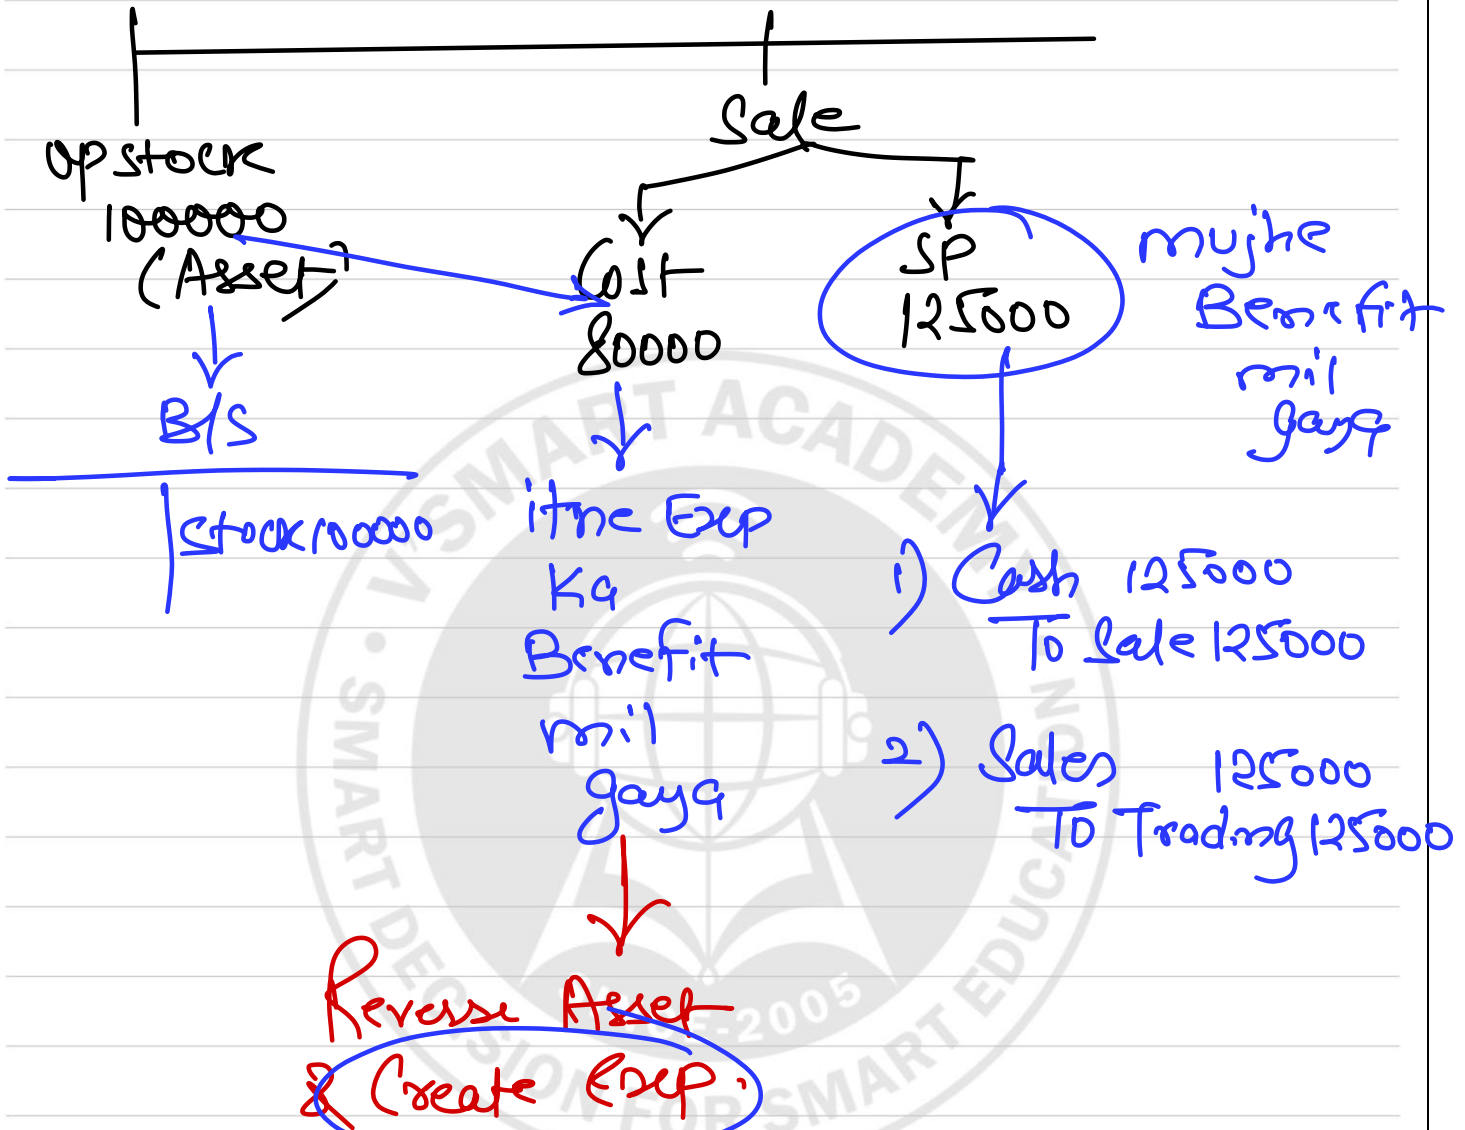 Sale
OP stock
100000
(Asset)
B/S
Stock 100000
Cost
80000
itne Exp
Ka
Benefit
mil
gaya
Reverse Asset
& Create Exp.
SP
125000
mujhe
Benefit
mil
gaya
1) Cash 125000
To Sale 125000
2) Sales 125000
To Trading 125000
V'SMART ACADEMY
SMART DECISION FOR SMART EDUCATION
-2005